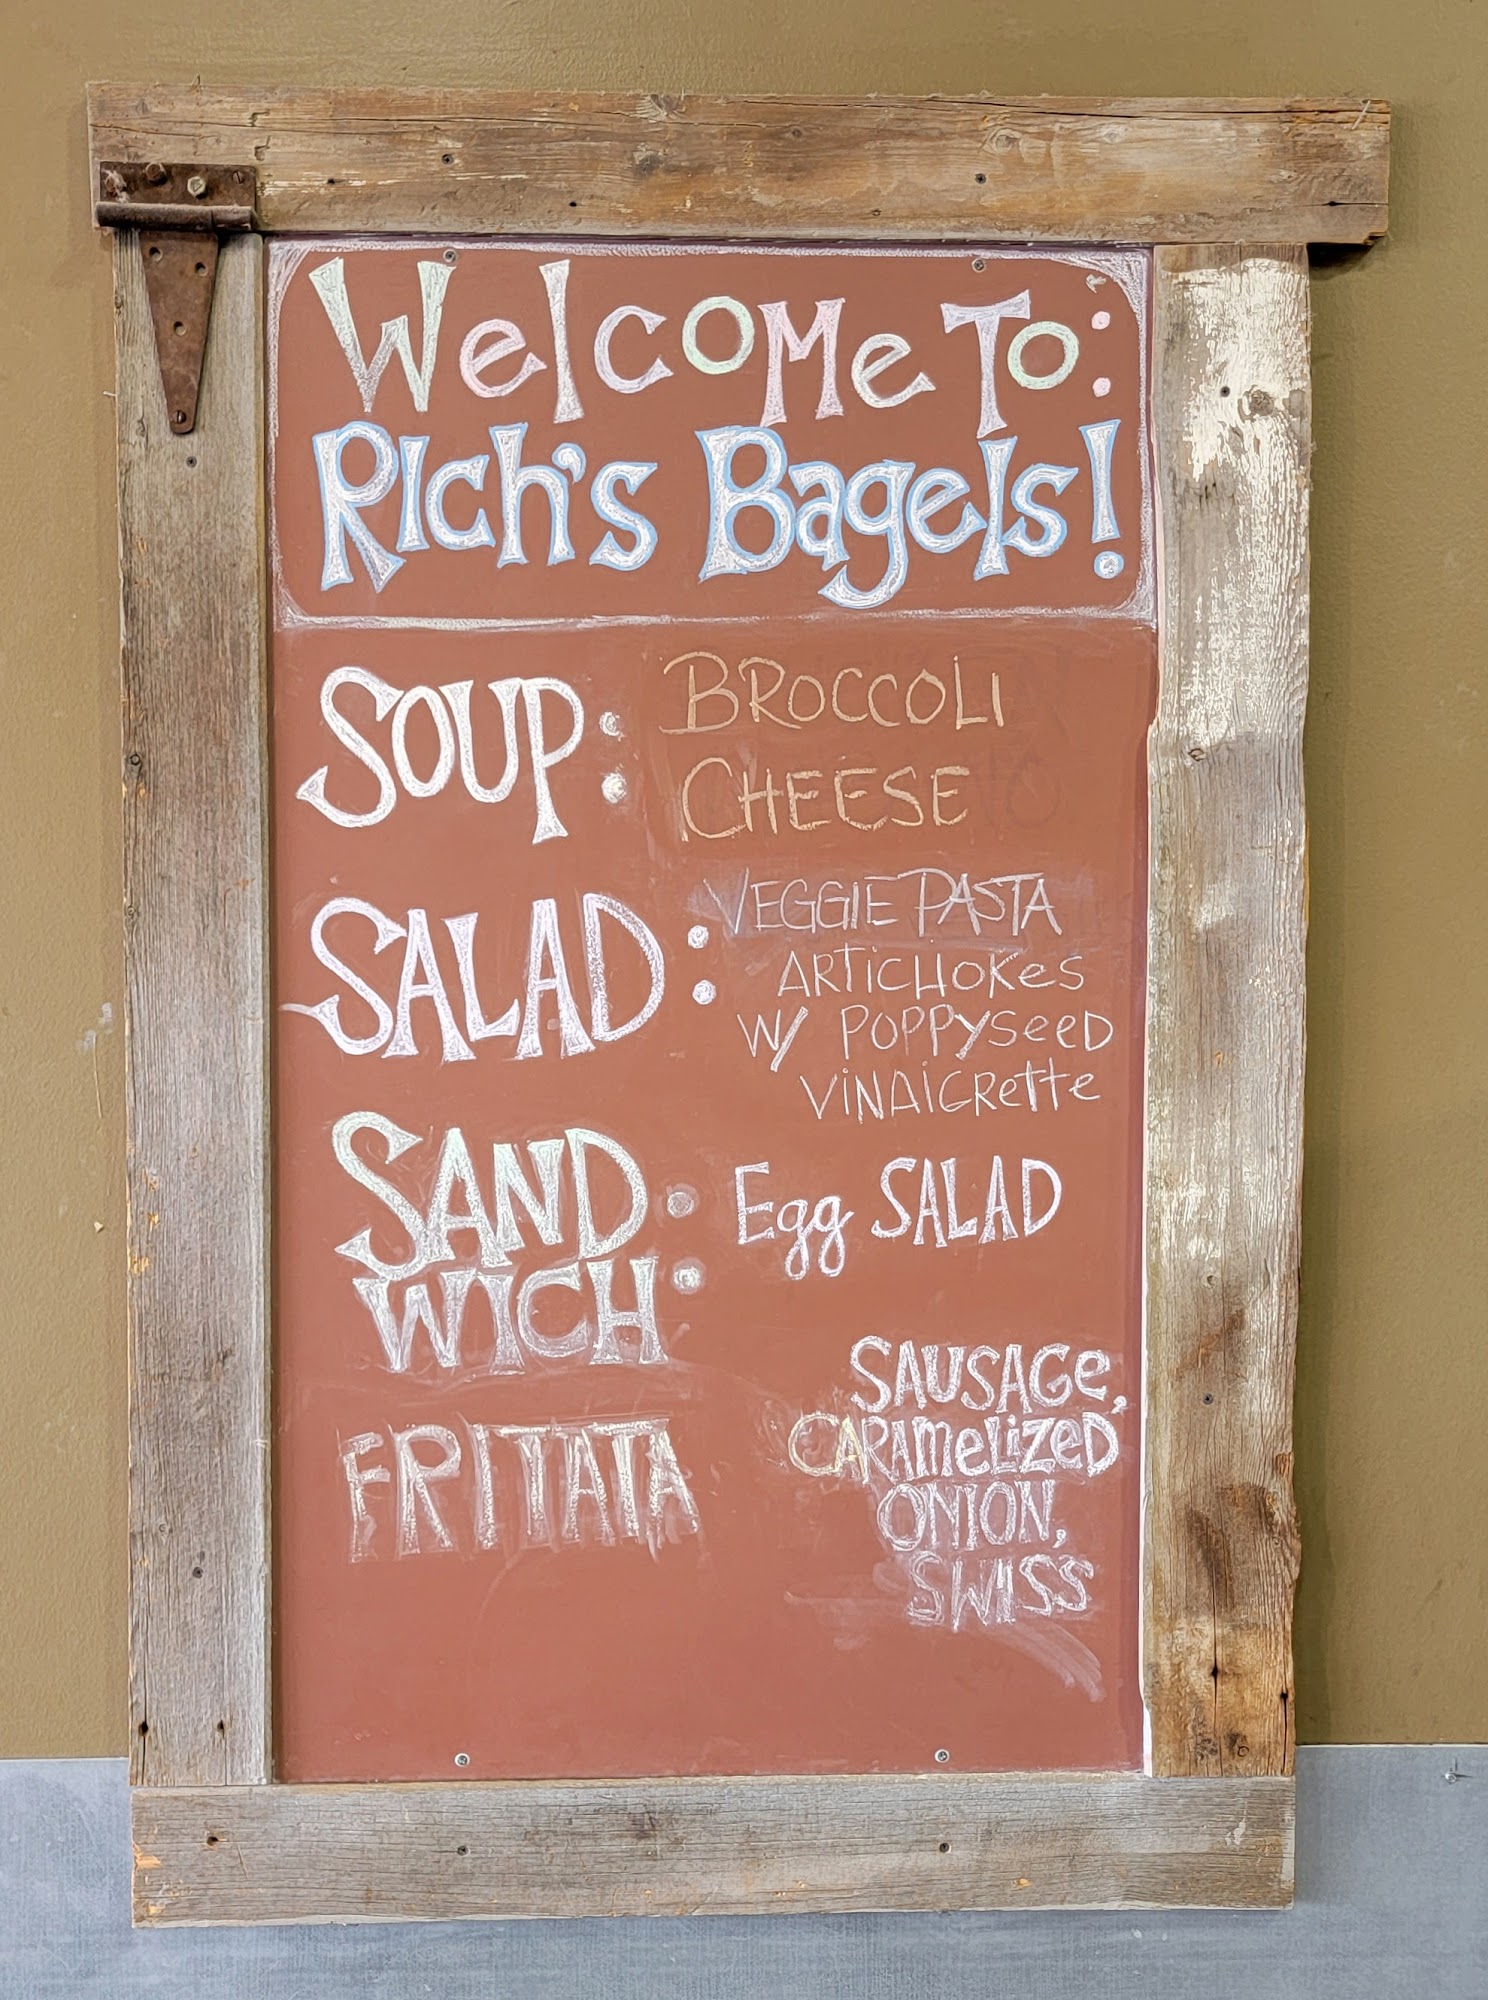 Welcome To:
Rich's Bagels!
SOUP: BROCCOLI
CHEESE
SALAD: VEGGIE PASTA
ARTICHOKES
W/ POPPYSEED
VINAIGRETTE
SAND
WICH: Egg SALAD
FRITATA
SAUSAGE,
CARAMELIZED
ONION,
SWISS